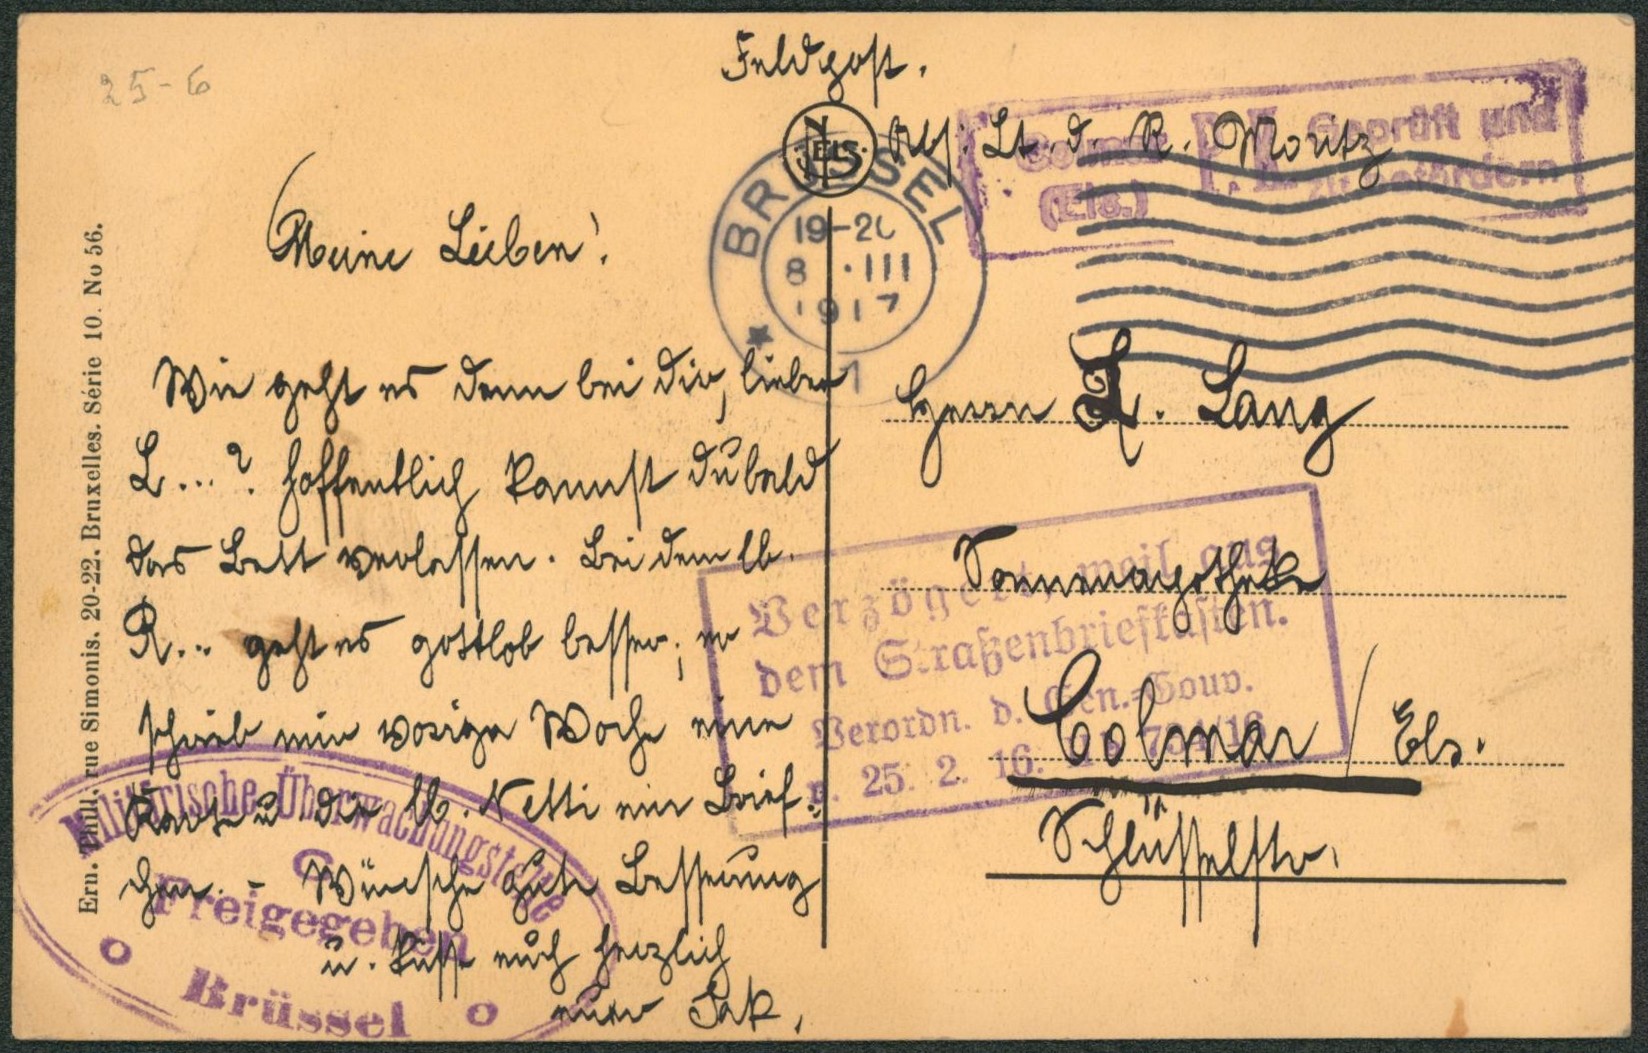 25-6
Feldpost.
Abs: Lt. d. R. Moritz
Colmar
(Els.)
P.K.
Geprüft und
zu befördern
NELS
BRÜSSEL
19-20
8 ·III
1917
1
Meine Lieben!
Wie geht es denn bei dir, lieber
L...? Hoffentlich kannst du bald
das Bett verlassen. Bei dem lb.
R... geht es gottlob besser; er
schrieb mir vorige Woche eine
Karte u. die lb. Netti ein Brief-
chen. - Wünsche gute Besserung
u. Küsse euch herzlich
euer Jak.
Herrn F. Lang
Sonnenapotheke
Colmar / Els.
Schlüsselstr.
Verzögert, weil aus
dem Straßenbriefkasten.
Verordn. d. Gen.-Gouv.
v. 25. 2. 16. 734/16
Militärische Überwachungsstelle
C
Freigegeben
Brüssel
Ern. Thill, rue Simonis. 20-22. Bruxelles. Série 10. No 56.